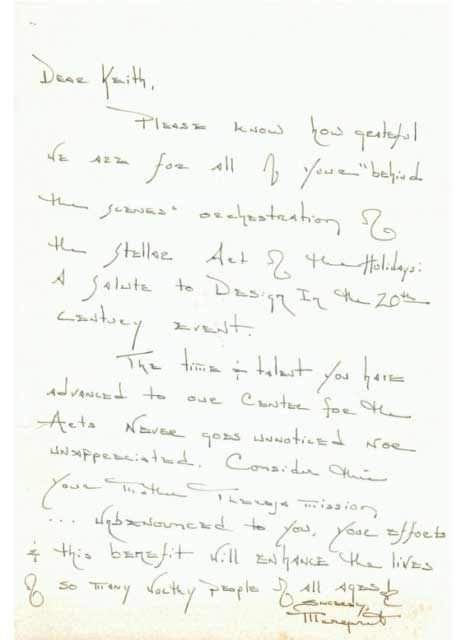 Dear Keith,
Please know how grateful
we are for all of your "behind
the scenes" orchestration of
the stellar Act of the Holidays:
A Salute to Design In the 20th
Century event.
The time & talent you have
advanced to our Center for the
Arts never goes unnoticed nor
unappreciated. Consider this
your Mother Theresa mission
... unbenounced to you, your efforts
& this benefit will enhance the lives
of so many worthy people of all ages &
Sincerely,
Margaret